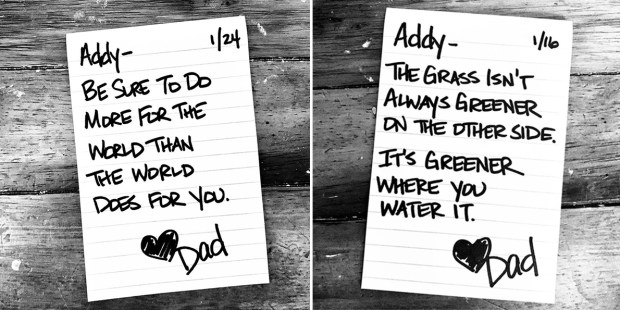 Addy- 1/24
BE SURE TO DO
MORE FOR THE
WORLD THAN
THE WORLD
DOES FOR YOU.
Dad
Addy- 1/16
THE GRASS ISN'T
ALWAYS GREENER
ON THE OTHER SIDE.
IT'S GREENER
WHERE YOU
WATER IT.
Dad